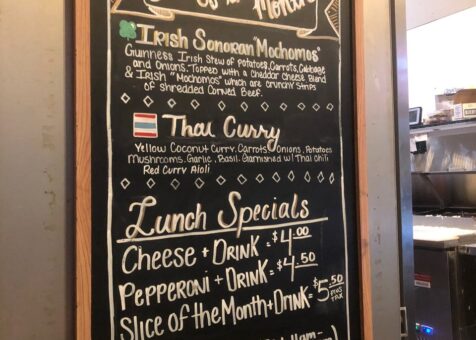 Month
Irish Sonoran "Mochomos"
Guinness Irish Stew of Potatoes, Carrots, Cabbage
and Onions. Topped with a Cheddar Cheese Blend
& Irish "Mochomos" which are crunchy strips
of shredded Corned Beef.
Thai Curry
Yellow Coconut Curry, Carrots, Onions, Potatoes
Mushrooms, Garlic, Basil. Garnished w/ Thai Chili
Red Curry Aioli
Lunch Specials
Cheese + Drink = $4.00
Pepperoni + Drink = $4.50
Slice of the Month + Drink = $5.50
plus tax
11am-